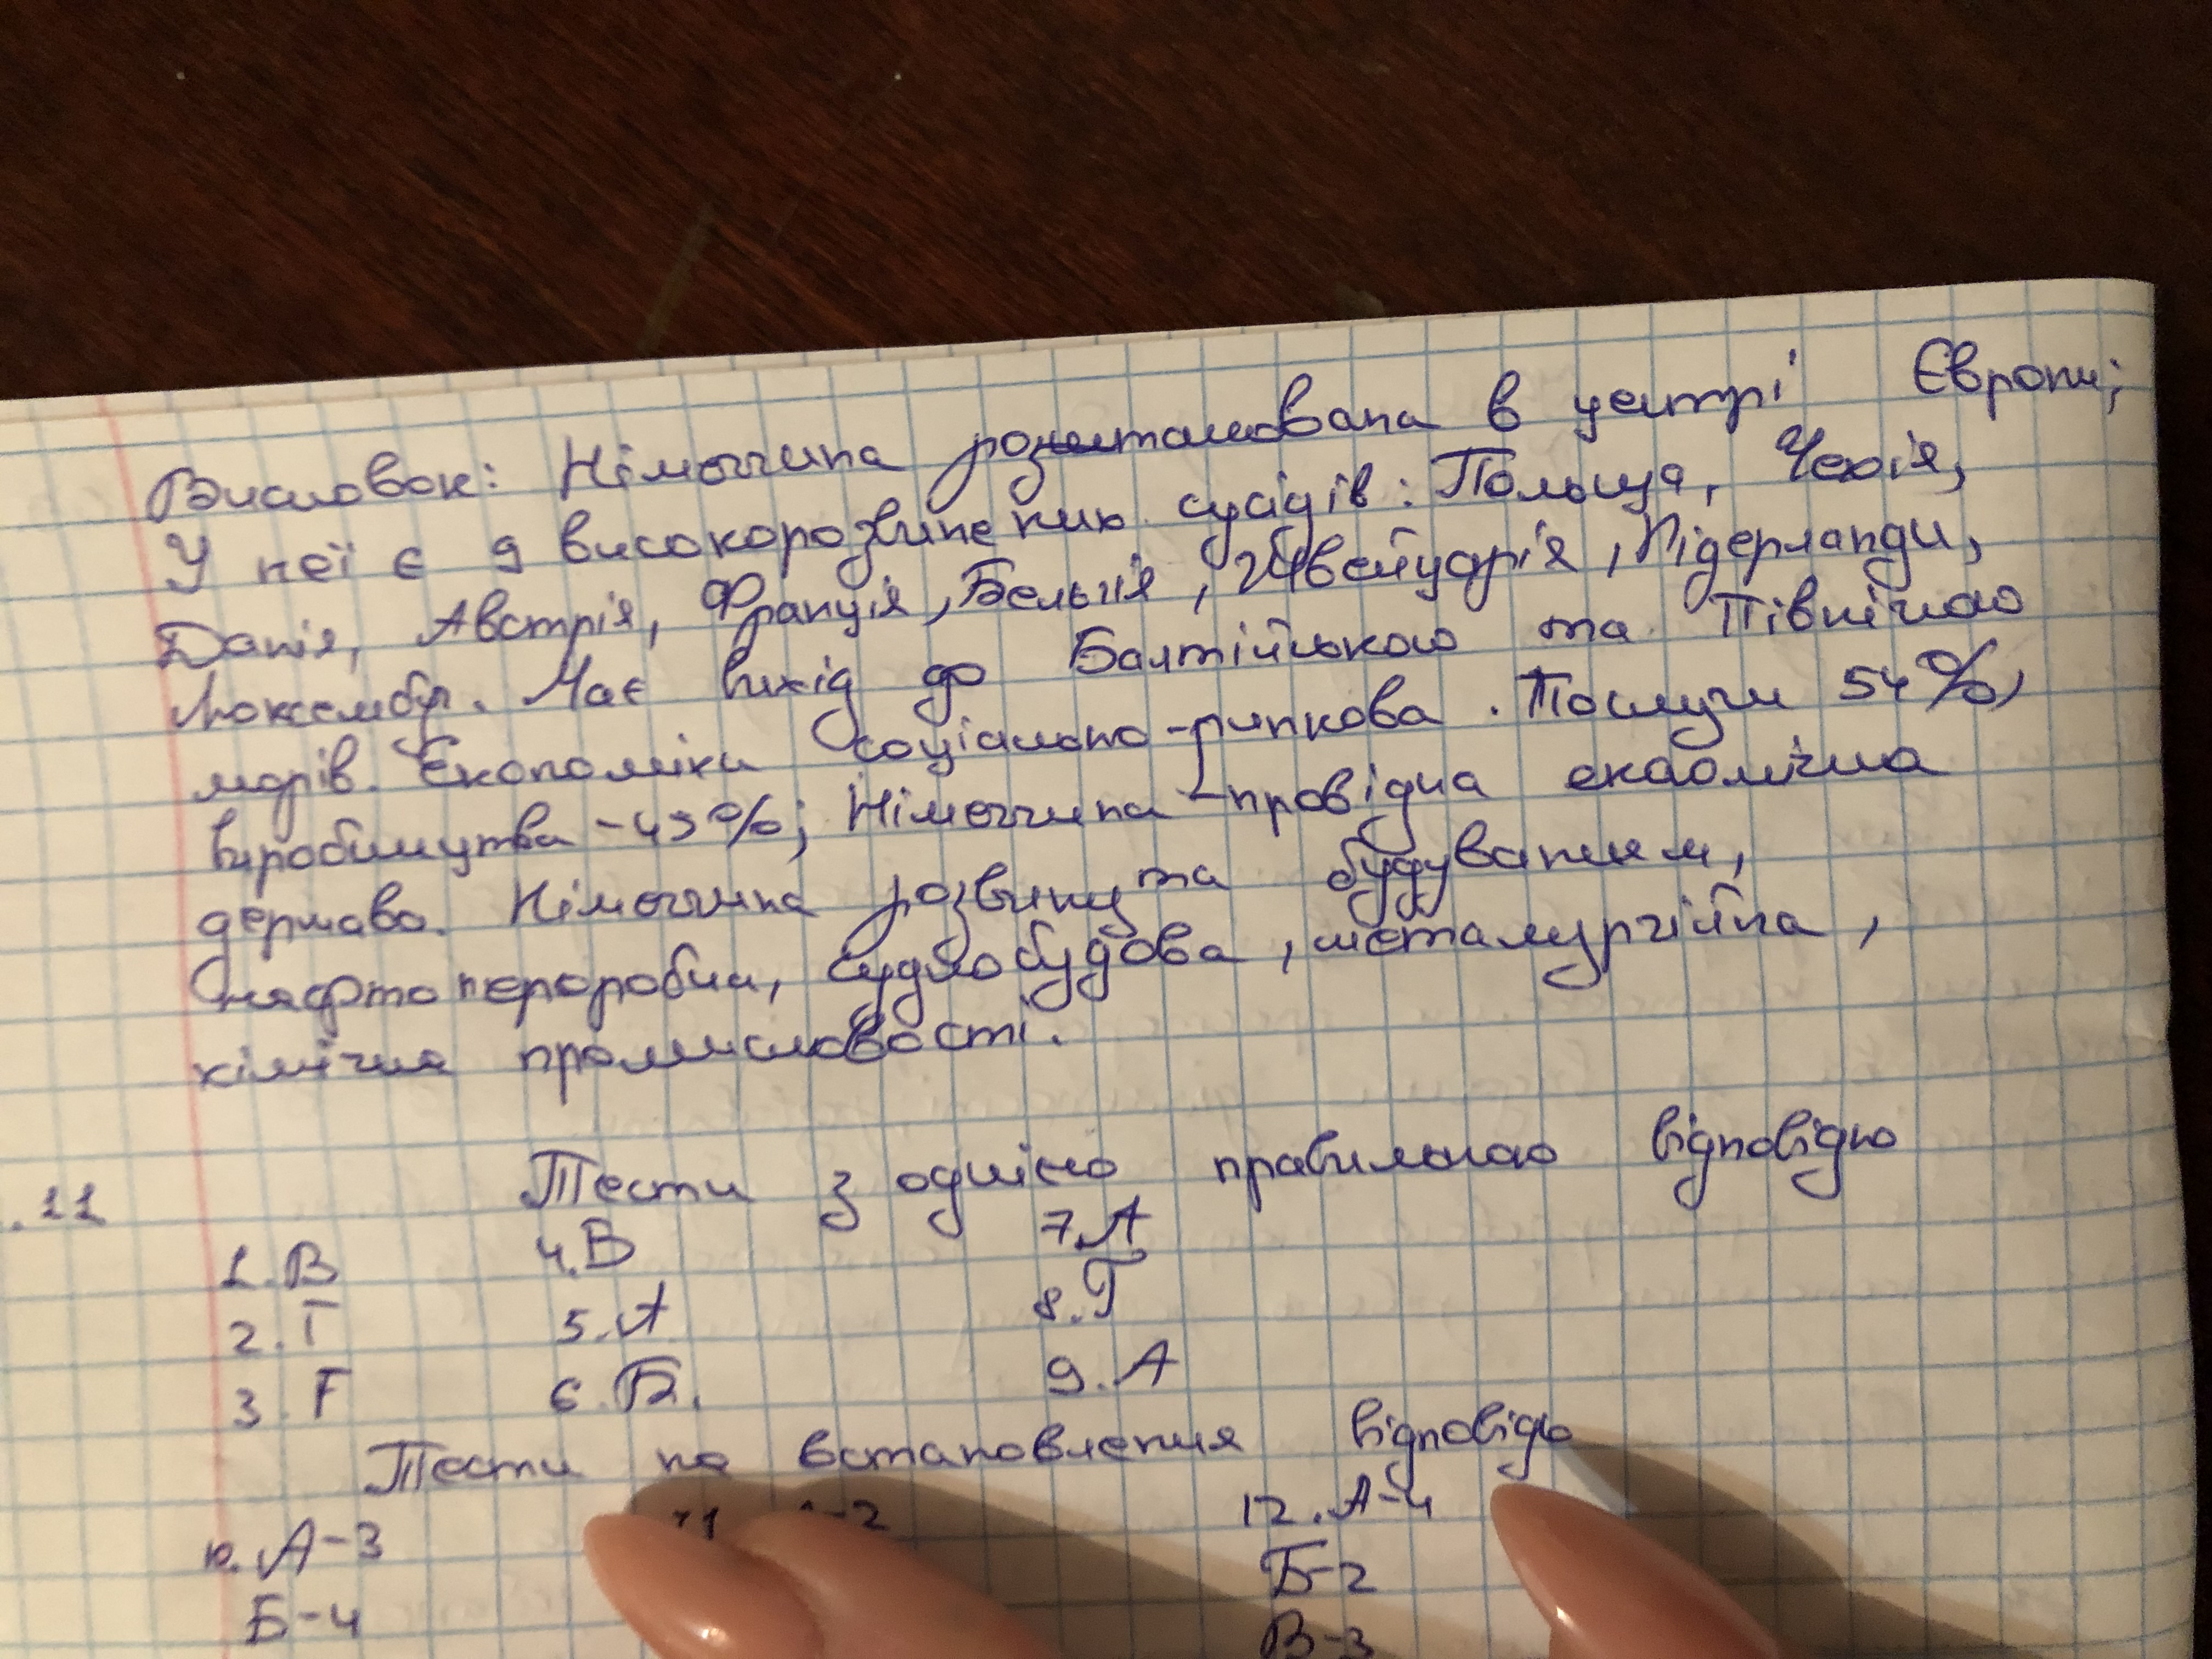 Висновок: Німеччина розташована в центрі Європи;
У неї є 9 високорозвинених сусідів: Польща, Чехія,
Данія, Австрія, Франція, Бельгія, Швейцарія, Нідерланди,
Люксембур. Має вихід до Балтійського та Північного
морів. Економіка соціально-ринкова. Послуги 54%,
виробництва - 45%; Німеччина - провідна економічна
держава. Німеччина розвинута будуванням,
нафтопереробна, суднобудова, металургійна,
хімічна промисловості.
.11 Тести з однією правильною відповідю
1. В 4. В 7. А
2. Г 5. А 8. Г
3. Г 6. Б. 9. А
Тести на встановлення відповідь
10. А-3 12. А-4
Б-4 Б-2
В-3